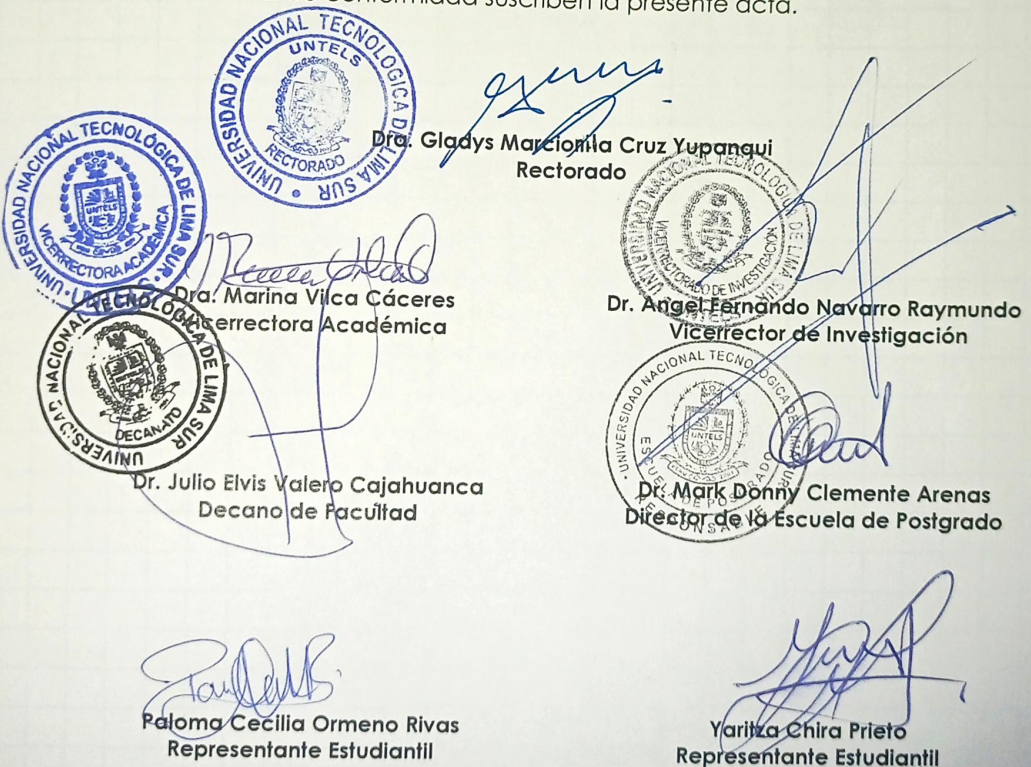 conformidad suscriben la presente acta.
UNIVERSIDAD NACIONAL TECNOLOGICA DE LIMA SUR
UNTELS
RECTORADO
Dra. Gladys Marcionila Cruz Yupanqui
Rectorado
UNIVERSIDAD NACIONAL TECNOLÓGICA DE LIMA SUR
UNTELS
VICERRECTORA ACADÉMICA
UNTELS
Dra. Marina Vilca Cáceres
Vicerrectora Académica
UNIVERSIDAD NACIONAL TECNOLOGICA DE LIMA
VICERRECTORADO DE INVESTIGACIÓN
Dr. Angel Fernando Navarro Raymundo
Vicerrector de Investigación
UNIVERSIDAD NACIONAL TECNOLÓGICA DE LIMA SUR
DECANATO
Dr. Julio Elvis Valero Cajahuanca
Decano de Facultad
UNIVERSIDAD NACIONAL TECNOLOGICA DE LIMA SUR
UNTELS
ESCUELA DE POSGRADO
RESPONSABLE
Dr. Mark Donny Clemente Arenas
Director de la Escuela de Postgrado
Paloma Cecilia Ormeno Rivas
Representante Estudiantil
Yaritza Chira Prieto
Representante Estudiantil